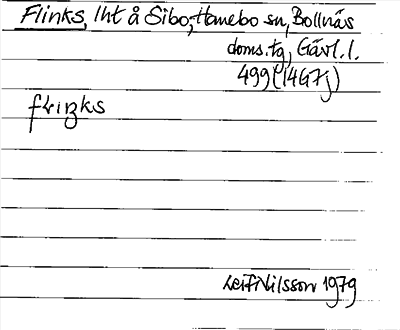 Flinks, lht å Sibo, Hanebo sn, Bollnäs
doms.tg, Gävl. l.
499 (14G7j)
Leif Nilsson 1979